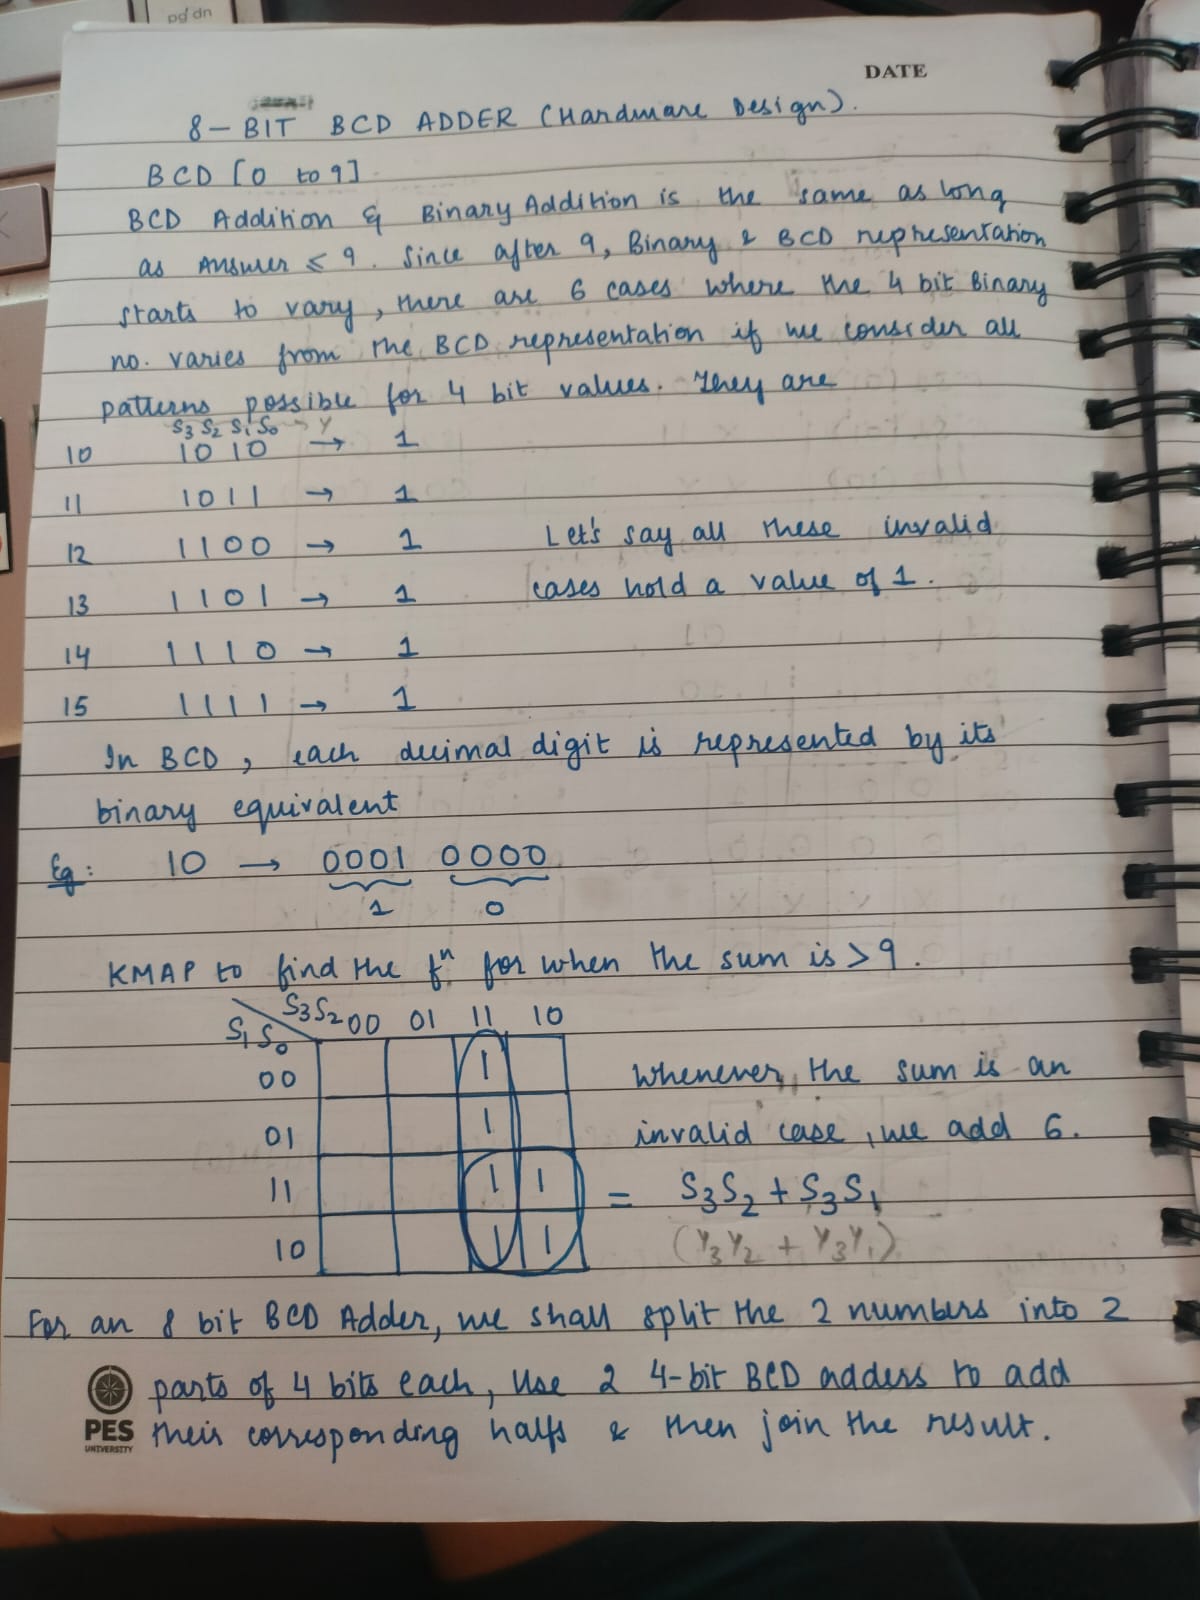 pg dn
DATE
8-BIT BCD ADDER (Hardware Design).
BCD [0 to 9]
BCD Addition & Binary Addition is the same as long
as Answer ≤ 9. Since after 9, Binary & BCD representation
starts to vary, there are 6 cases where the 4 bit Binary
no. varies from the BCD representation if we consider all
patterns possible for 4 bit values. They are
S3 S2 S1 S0 → Y
10 1010 → 1
11 1011 → 1
12 1100 → 1 Let's say all these invalid
13 1101 → 1 cases hold a value of 1.
14 1110 → 1
15 1111 → 1
In BCD, each decimal digit is represented by its
binary equivalent
Eg: 10 → 0001 0000
1 0
KMAP to find the fn for when the sum is > 9.
S3S2 00 01 11 10
S1S0
00 1 Whenever, the sum is an
01 1 invalid case, we add 6.
11 1 1 = S3S2 + S3S1
10 1 1 (Y3Y2 + Y3Y1)
For an 8 bit BCD Adder, we shall split the 2 numbers into 2
parts of 4 bits each, Use 2 4-bit BCD adders to add
their corresponding halfs & then join the result.
PES
UNIVERSITY